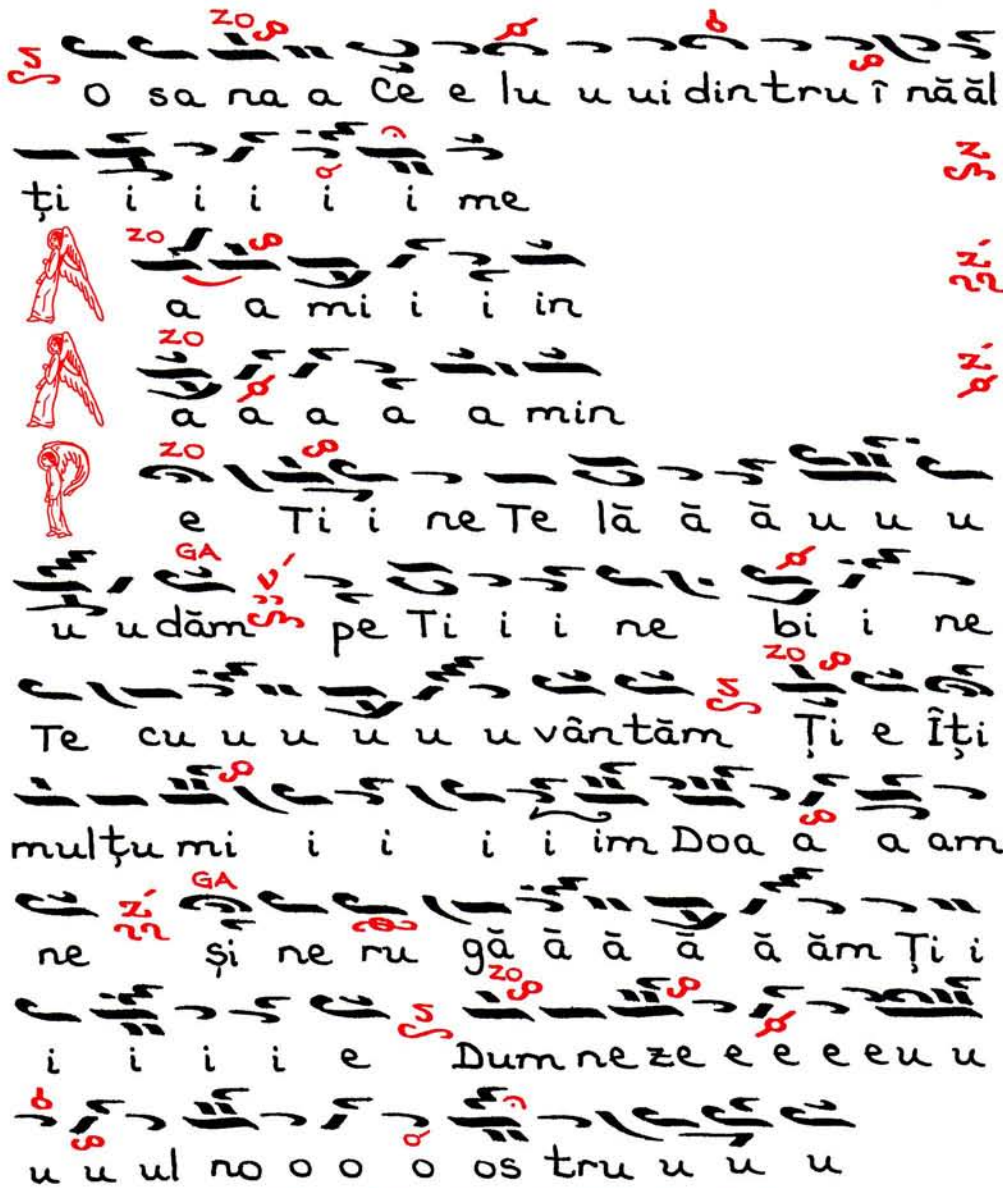 ZO
O sa na a Ce e lu u ui din tru î nă ăl
ți i i i i i me
ZO
A a a mi i i in
ZO
A a a a a a min
ZO
P e Ti i ne Te lă ă ă u u u
GA
u u dăm pe Ti i i ne bi i ne
ZO
Te cu u u u u u vântăm Ți e Îți
mulțu mi i i i i im Doa a a am
GA
ne și ne ru gă ă ă ă ă ăm Ți i
ZO
i i i i e Dum ne ze e e e eu u
u u ul no o o o os tru u u u